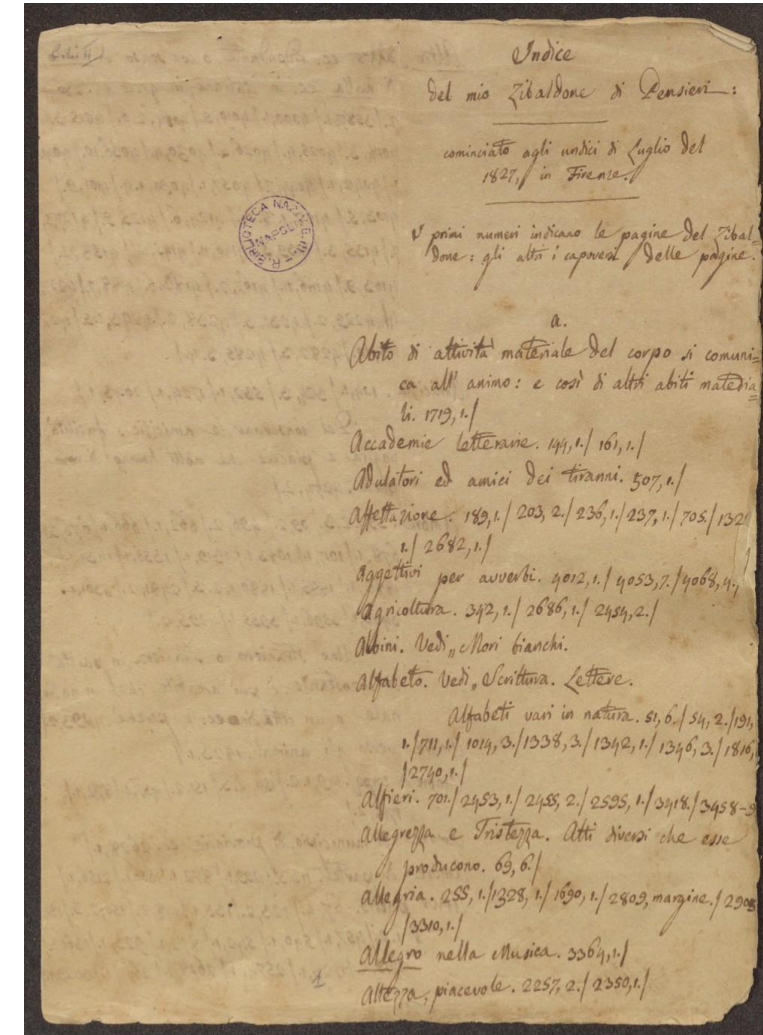 Indice
del mio Zibaldone di Pensieri:
cominciato agli undici di Luglio del
1827, in Firenze.
I primi numeri indicano le pagine del Zibal=
done: gli altri i capoversi delle pagine.
a.
Abito di attività materiale del corpo si comuni=
ca all' animo: e così di altri abiti materia=
li. 1719,1./
Accademie letterarie. 144,1./ 161,1./
Adulatori ed amici dei tiranni. 507,1./
Affettazione. 189,1./ 203, 2./ 236,1./ 237,1./ 705./
1./ 2682,1./
Aggettivi per avverbi. 4012,1./ 4053,7./ 4068,4./
Agricoltura. 342,1./ 2686,1./ 2454,2./
Albini. Vedi„ Mori bianchi.
Alfabeto. Vedi„ Scrittura. Lettere.
Alfabeti vari in natura. 51, 6./ 54, 2./ 191,
1./ 711,1./ 1014, 3./ 1338, 3./ 1342, 1./ 1346, 3./ 1816,
/2740,1./
Alfieri. 701./ 2453, 1./ 2455, 2./ 2595, 1./ 3418./ 3458-9
Allegrezza e Tristezza. Atti diversi che esse
producono. 69, 6./
Allegria. 255, 1./ 1328, 1./ 1690, 1./ 2809, margine./
/3310,1./
Allegro nella Musica. 3364,1./
Altezza, piacevole. 2257, 2./ 2350,1./
BIBLIOTECA NAZ.
NAPOLI
1